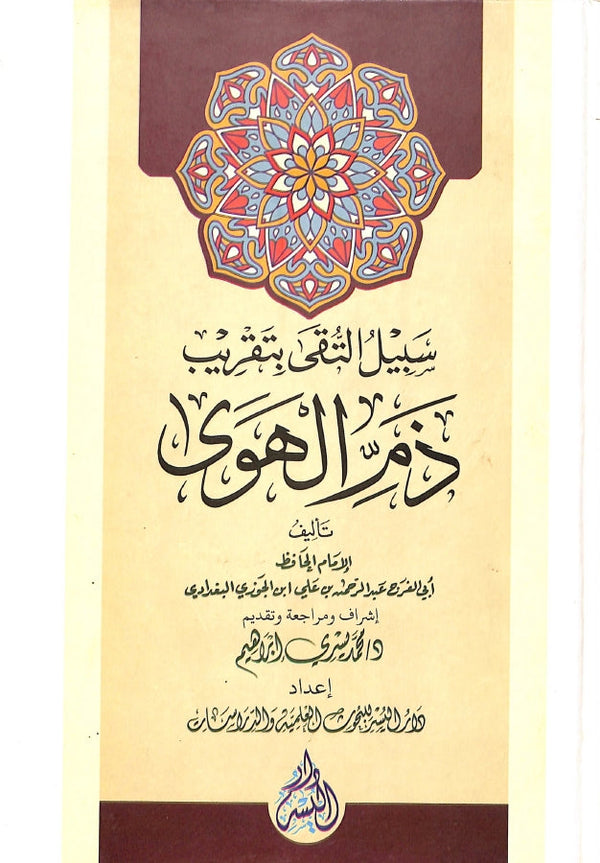 سَبِيلُ التُّقَى بِتَقْرِيبِ
ذَمِّ الْهَوَى
تأليفُ
الإمام الحافظ
أبي الفرج عبد الرحمن بن علي ابن الجوزي البغدادي
إشراف ومراجعة وتقديم
د/محمد يسري إبراهيم
إعداد
دار اليسر للبحوث العلمية والدراسات
دار اليسر